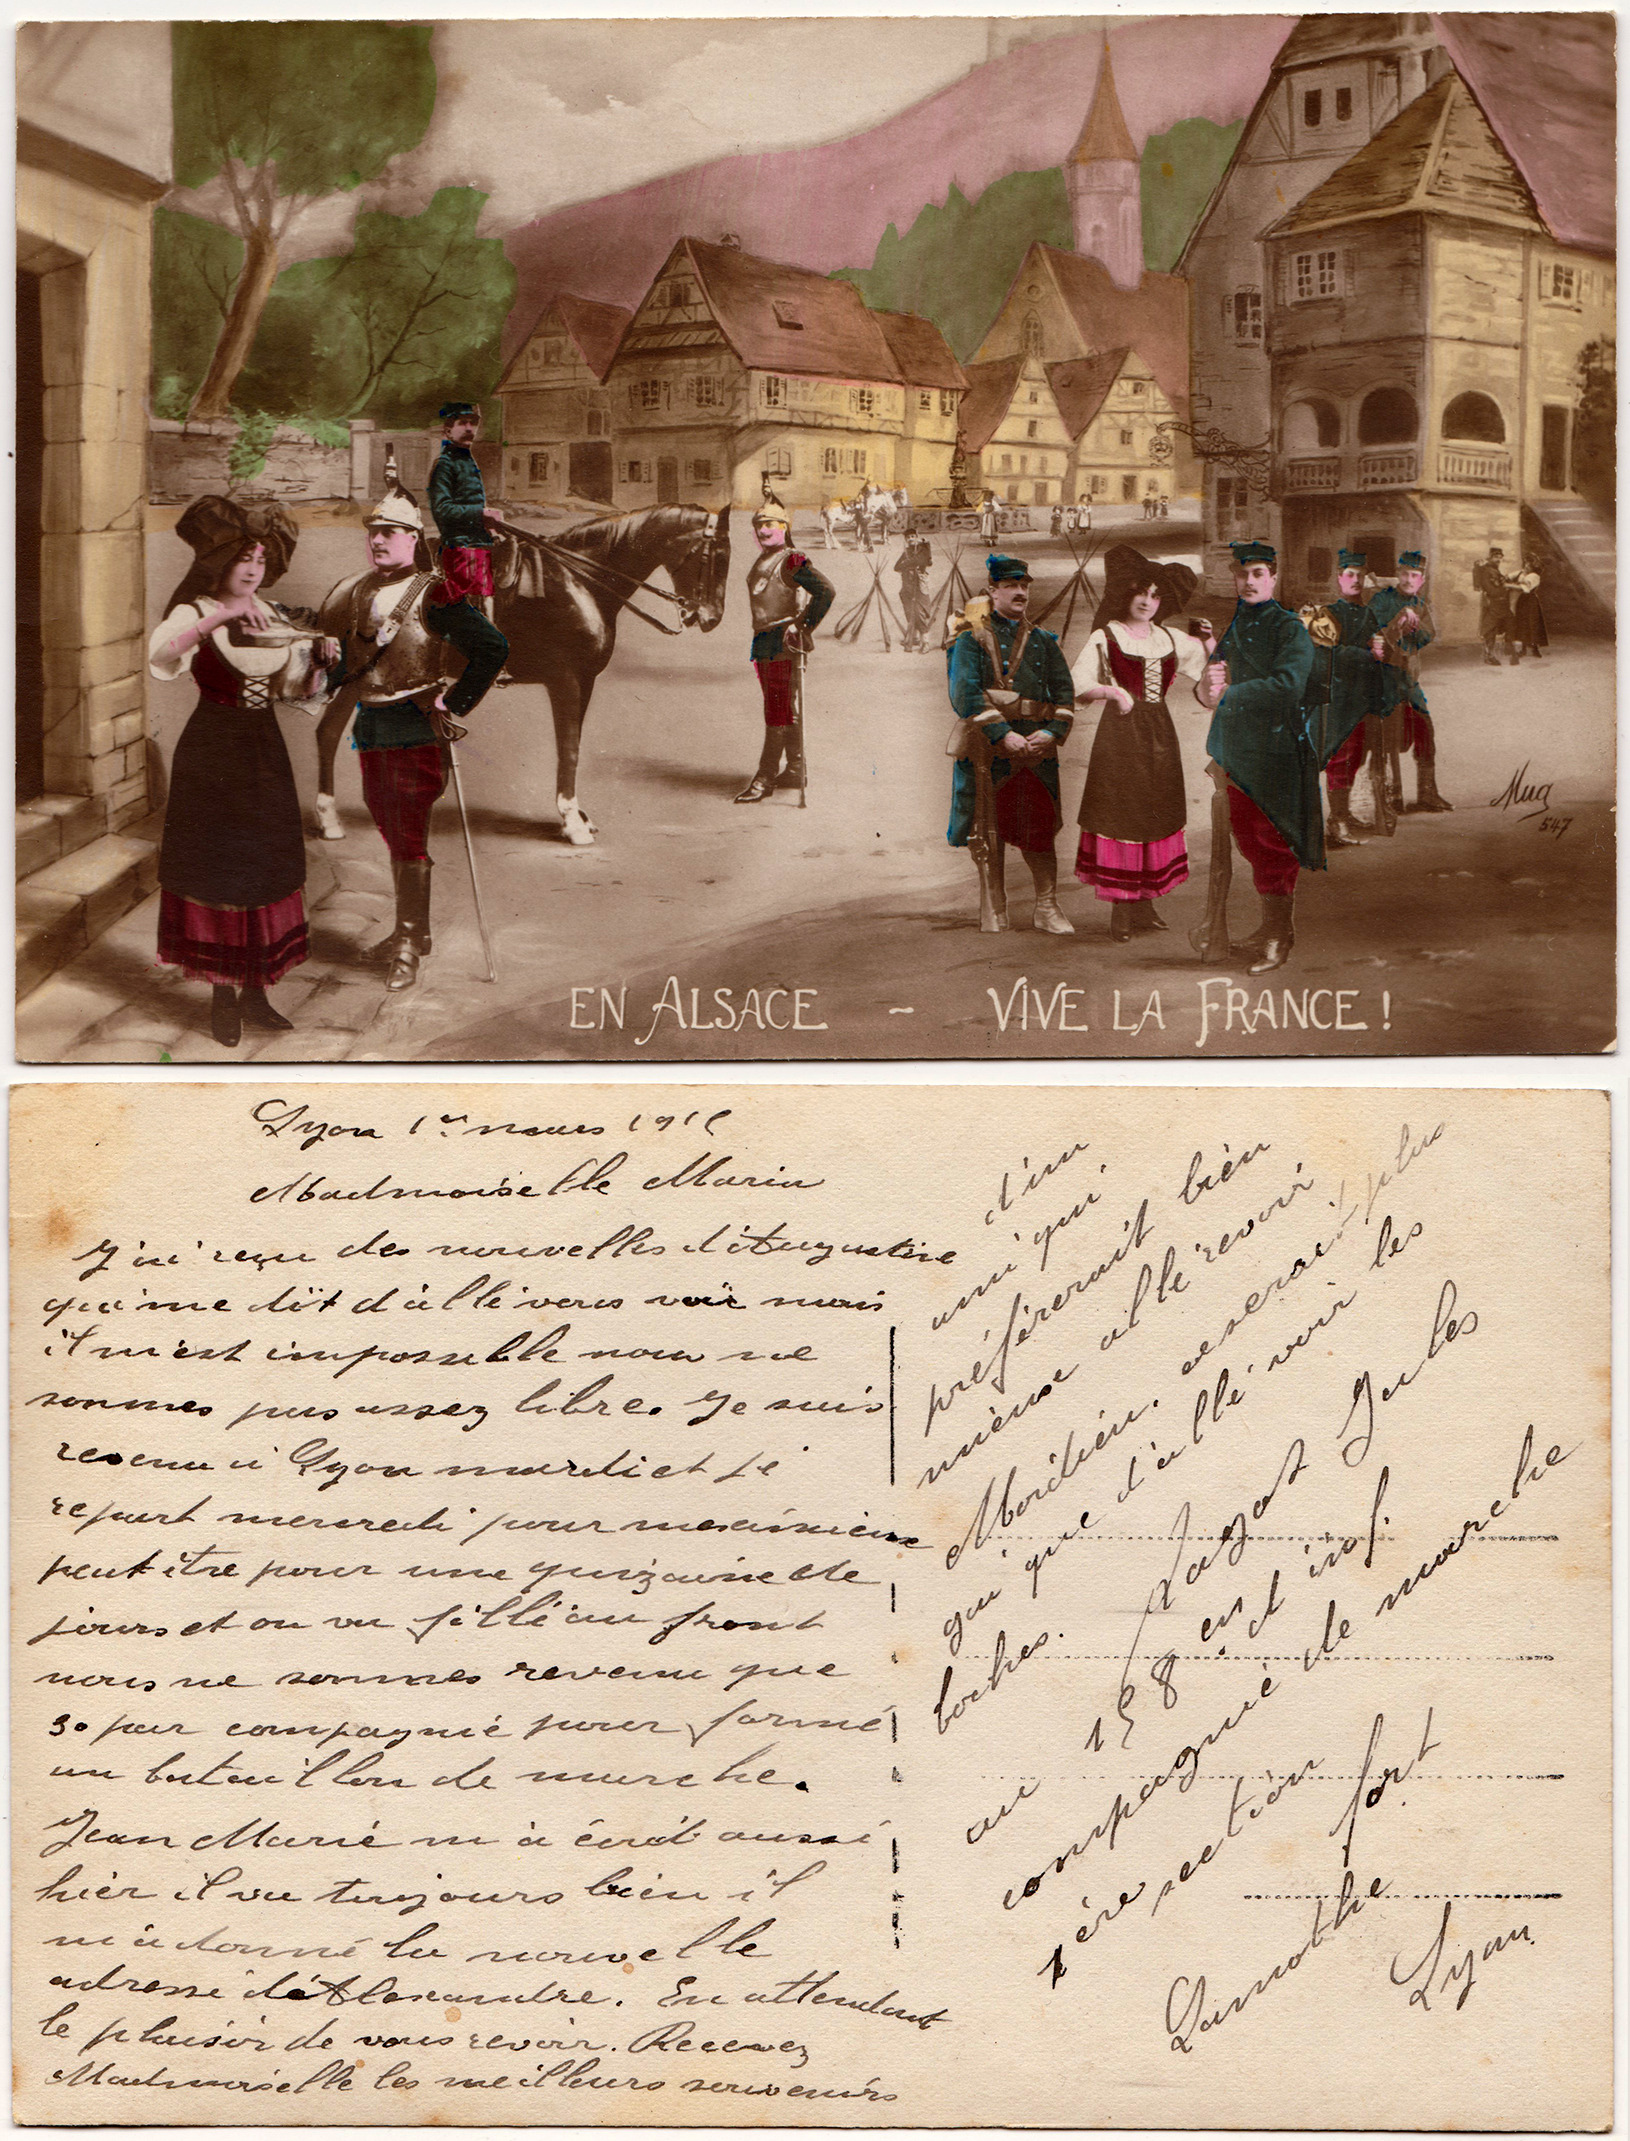 EN ALSACE - VIVE LA FRANCE !
Mug
547
Lyon 1er mars 1915
Madmoiselle Maria
J'ai reçu des nouvelles d'Augustine
qui me dit d'allé vous voir mais
il m'est impossible nous ne
sommes pas assez libre. Je suis
revenu à Lyon mardi et je
repart mercredi pour
peut être pour une quizaine de
jours et on va fillé au front
nous ne sommes revenu que
30 par compagnie pour formé
un bataillon de marche.
Jean Marie m'a écrit aussi
hier il va toujours bien il
m'a donné la nouvelle
adresse d'Alexandre. En attendant
le plaisir de vous revoir. Recevez
Madmoiselle les meilleurs souvenirs
d'un
ami qui
préfèrerait bien
mieux allé revoir
ce serait plus
gai que d'allé voir les
boches.
Jules
au 158 en d inf.
compagnie de marche
1ère section
Lamothe fort
Lyon